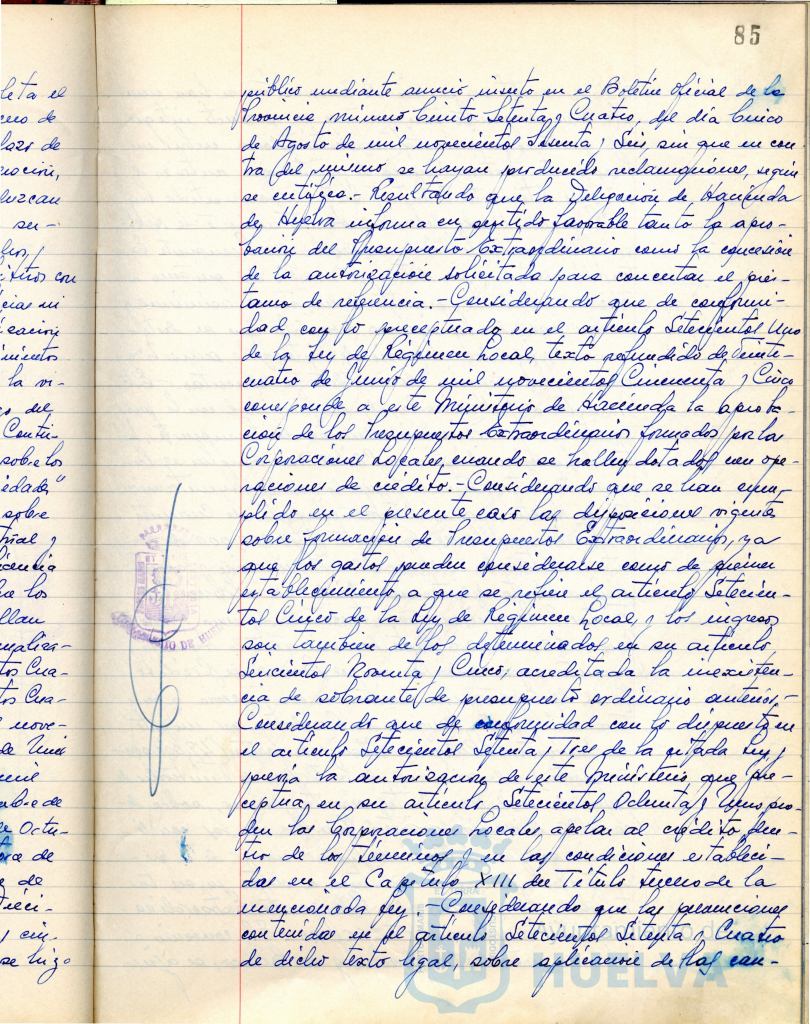 85
público mediante anuncio inserto en el Boletín Oficial de la
Provincia, número Ciento Setenta y Cuatro, del día Cinco
de Agosto de mil novecientos Sesenta y Seis, sin que en con-
tra del mismo se hayan producido reclamaciones, según
se certifica.- Resultando que la Delegación de Hacienda
de Huelva informa en sentido favorable tanto la apro-
bación del Presupuesto Extraordinario como la concesión
de la autorización solicitada para concertar el prés-
tamo de referencia.- Considerando que de conformi-
dad con lo preceptuado en el artículo Setecientos Uno
de la Ley de Régimen Local, texto refundido de Veinti-
cuatro de Junio de mil novecientos Cincuenta y Cinco
corresponde a este Ministerio de Hacienda la aproba-
ción de los Presupuestos Extraordinarios formados por las
Corporaciones Locales, cuando se hallen dotados con ope-
raciones de crédito.- Considerando que se han cum-
plido en el presente caso las disposiciones vigentes
sobre formación de Presupuestos Extraordinarios, ya
que los gastos pueden considerarse como de primer
establecimiento a que se refiere el artículo Setecien-
tos Cinco de la Ley de Régimen Local, y los ingresos
son también de los determinados en su artículo
Seiscientos Noventa y Cinco, acreditada la inexisten-
cia de sobrante de presupuesto ordinario anterior.-
Considerando que de conformidad con lo dispuesto en
el artículo Setecientos Setenta y Tres de la citada Ley,
previa la autorización de este Ministerio que pre-
ceptua en su artículo Setecientos Ochenta y Uno pue-
den las Corporaciones Locales apelar al crédito den-
tro de los términos y en las condiciones estableci-
das en el Capítulo XIII del Título tercero de la
mencionada Ley.- Considerando que las prevenciones
contenidas en el artículo Setecientos Setenta y Cuatro
de dicho texto legal, sobre aplicación de las can-
leta el
lazo de
duzcan
la vi-
Conti-
sobre los
sobre
llan
tos Cua-
tos Cua-
nove-
Octu-
se hizo
HUELVA